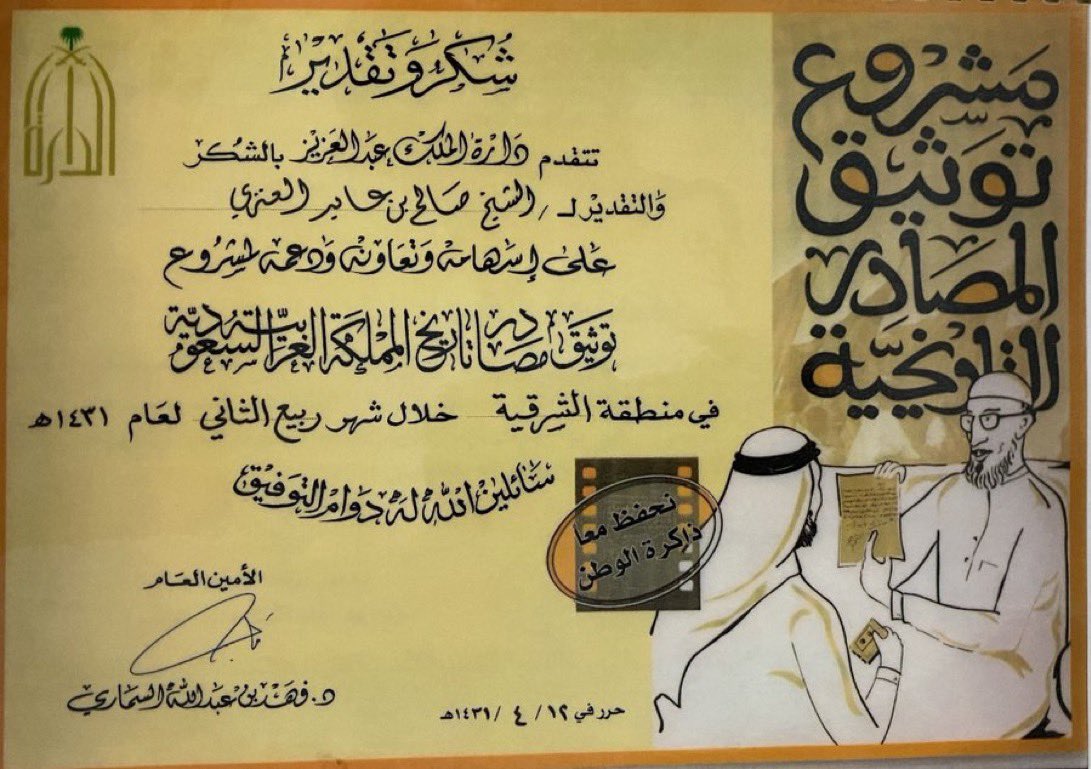 شكر وتقدير
تتقدم دارة الملك عبدالعزيز بالشكر
والتقدير لـ / الشيخ صالح بن عابر العنزي
على إسهامه وتعاونه ودعمه لمشروع
توثيق مصادر تاريخ المملكة العربية السعودية
في منطقة الشرقية خلال شهر ربيع الثاني لعام ١٤٣١هـ
سائلين الله له دوام التوفيق
الأمين العام
د. فهد بن عبدالله السماري
حرر في ١٢ / ٤ / ١٤٣١هـ
الدارة
مشروع
توثيق
المصادر
التاريخية
نحفظ معا
ذاكرة الوطن